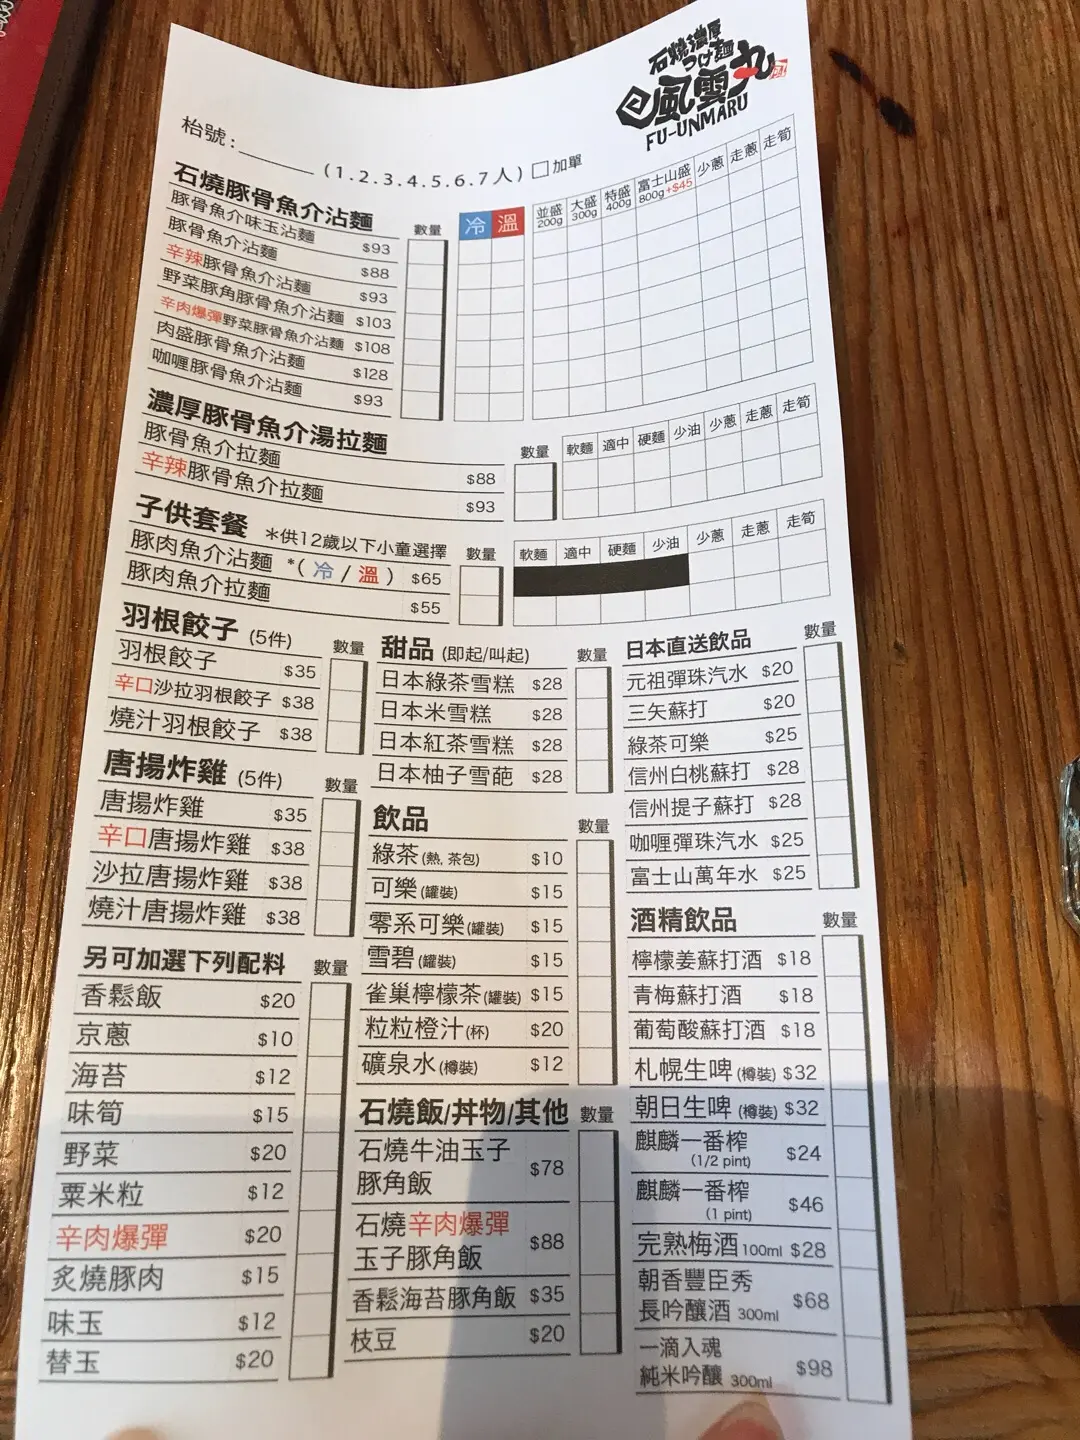 石燒濃厚
つけ麵
風雲丸
FU-UNMARU
枱號：______ (1.2.3.4.5.6.7人) □加單
石燒豚骨魚介沾麵 數量 冷 溫 並盛200g 大盛300g 特盛400g 富士山盛800g+$45 少蔥 走蔥 走筍
豚骨魚介味玉沾麵 $93
豚骨魚介沾麵 $88
辛辣豚骨魚介沾麵 $93
野菜豚角豚骨魚介沾麵 $103
辛肉爆彈野菜豚骨魚介沾麵 $108
肉盛豚骨魚介沾麵 $128
咖喱豚骨魚介沾麵 $93
濃厚豚骨魚介湯拉麵 數量 軟麵 適中 硬麵 少油 少蔥 走蔥 走筍
豚骨魚介拉麵 $88
辛辣豚骨魚介拉麵 $93
子供套餐 *供12歲以下小童選擇 數量 軟麵 適中 硬麵 少油 少蔥 走蔥 走筍
豚肉魚介沾麵 *(冷/溫) $65
豚肉魚介拉麵 $55
羽根餃子 (5件) 數量
羽根餃子 $35
辛口沙拉羽根餃子 $38
燒汁羽根餃子 $38
唐揚炸雞 (5件) 數量
唐揚炸雞 $35
辛口唐揚炸雞 $38
沙拉唐揚炸雞 $38
燒汁唐揚炸雞 $38
另可加選下列配料 數量
香鬆飯 $20
京蔥 $10
海苔 $12
味筍 $15
野菜 $20
粟米粒 $12
辛肉爆彈 $20
炙燒豚肉 $15
味玉 $12
替玉 $20
甜品 (即起/叫起) 數量
日本綠茶雪糕 $28
日本米雪糕 $28
日本紅茶雪糕 $28
日本柚子雪葩 $28
飲品 數量
綠茶(熱, 茶包) $10
可樂(罐裝) $15
零系可樂(罐裝) $15
雪碧(罐裝) $15
雀巢檸檬茶(罐裝) $15
粒粒橙汁(杯) $20
礦泉水(樽裝) $12
石燒飯/丼物/其他 數量
石燒牛油玉子
豚角飯 $78
石燒辛肉爆彈
玉子豚角飯 $88
香鬆海苔豚角飯 $35
枝豆 $20
日本直送飲品 數量
元祖彈珠汽水 $20
三矢蘇打 $20
綠茶可樂 $25
信州白桃蘇打 $28
信州提子蘇打 $28
咖喱彈珠汽水 $25
富士山萬年水 $25
酒精飲品 數量
檸檬姜蘇打酒 $18
青梅蘇打酒 $18
葡萄酸蘇打酒 $18
札幌生啤(樽裝) $32
朝日生啤(樽裝) $32
麒麟一番榨
(1/2 pint) $24
麒麟一番榨
(1 pint) $46
完熟梅酒100ml $28
朝香豐臣秀
長吟釀酒 300ml $68
一滴入魂
純米吟釀 300ml $98